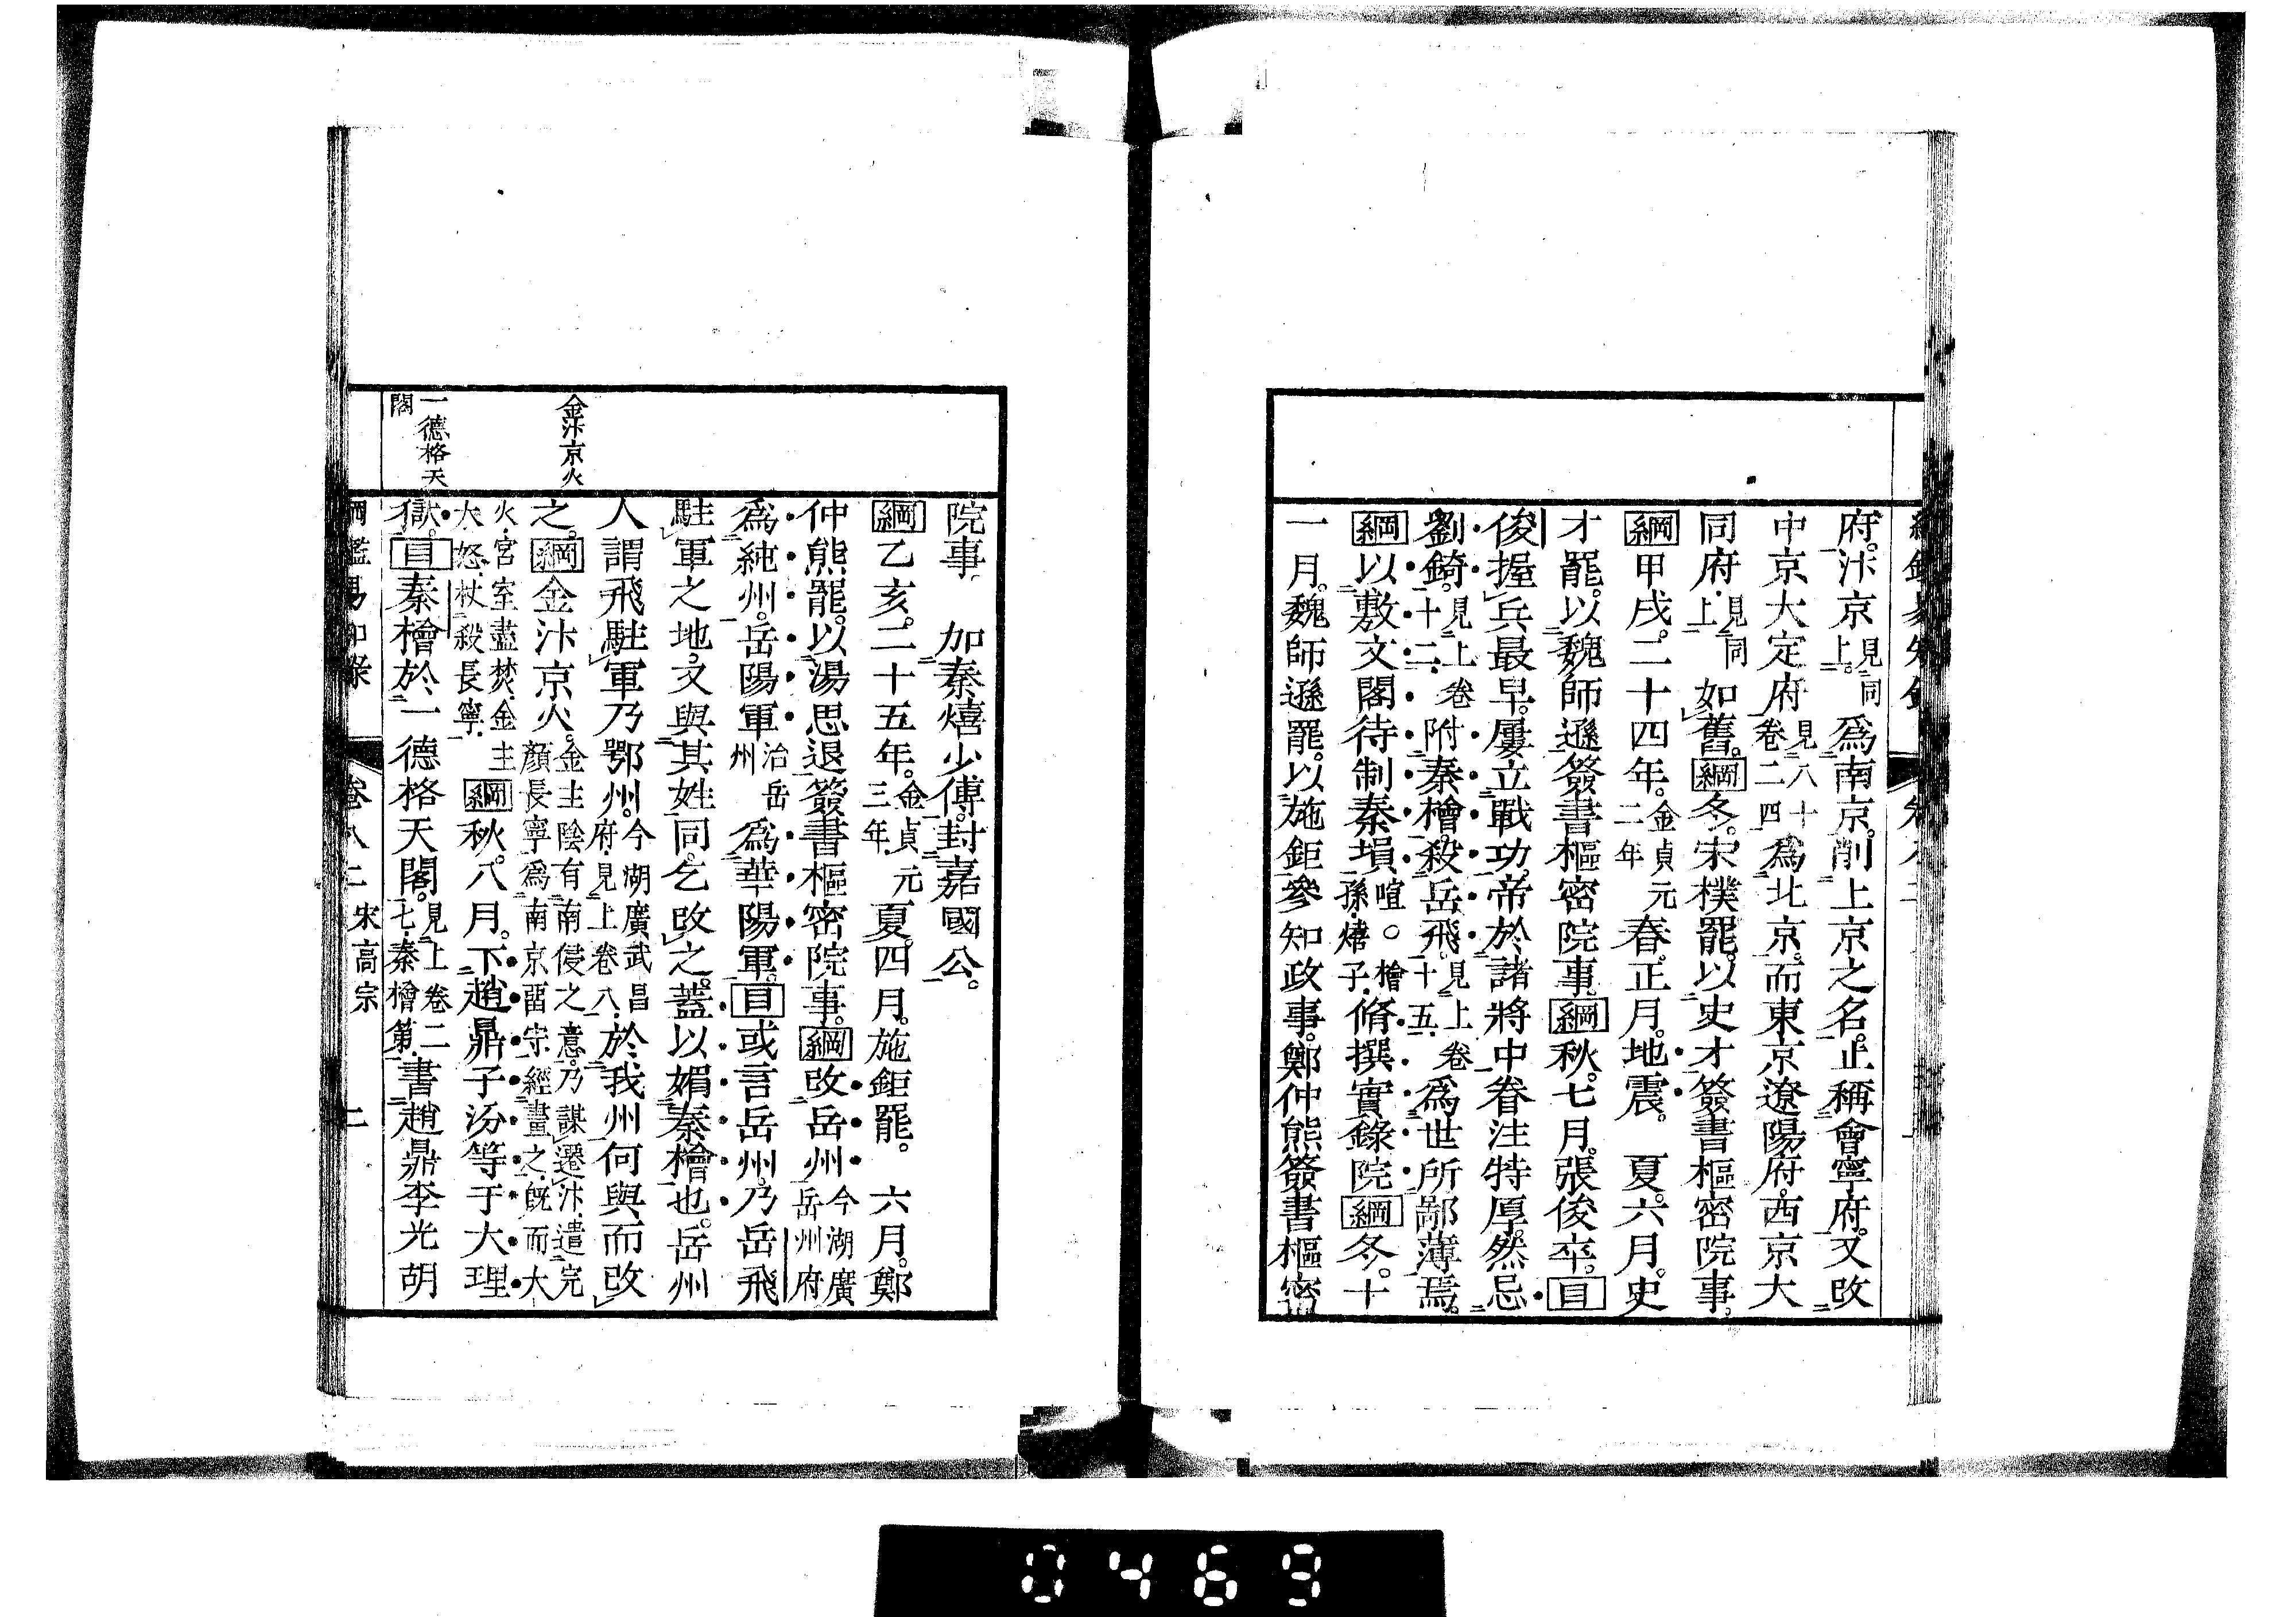 府。汴京見同上。爲南京。削上京之名。止稱會寧府。又改
中京大定府見八十卷二四爲北京。而東京遼陽府。西京大
同府。見同上如舊。綱冬。宋樸罷。以史才簽書樞密院事。
綱甲戌。二十四年。金貞元二年春。正月。地震。 夏。六月。史
才罷。以魏師遜簽書樞密院事。綱秋。七月。張俊卒。目
俊握兵最早。屢立戰功。帝於諸將中眷注特厚。然忌
劉錡。見上卷十二附秦檜。殺岳飛。見上卷十五爲世所鄙薄焉。
綱以敷文閣待制秦塤喧。檜孫。熺子。脩撰實錄院綱冬。十
一月。魏師遜罷。以施鉅參知政事。鄭仲熊簽書樞密
院事 加秦熺少傅。封嘉國公。
綱乙亥。二十五年。金貞元三年夏。四月。施鉅罷。 六月。鄭
仲熊罷。以湯思退簽書樞密院事。綱改岳州今湖廣岳州府
爲純州。岳陽軍治岳州爲華陽軍。目或言岳州。乃岳飛
駐軍之地。又與其姓同。乞改之。蓋以媚秦檜也。岳州
人謂飛駐軍乃鄂州。今湖廣武昌府。見上卷八。於我州何與而改
之。綱金汴京火。金主陰有南侵之意。乃謀遷汴。遣完顏長寧爲南京畱守經畫之。旣而大
火。宮室盡焚。金主大怒。杖殺長寧。綱秋。八月。下趙鼎子汾等于大理
獄。目秦檜於一德格天閣。見上卷二七。秦檜第。書趙鼎李光胡
金汴京火
一德格天
閣
綱鑑易知錄 卷八二 宋高宗 二